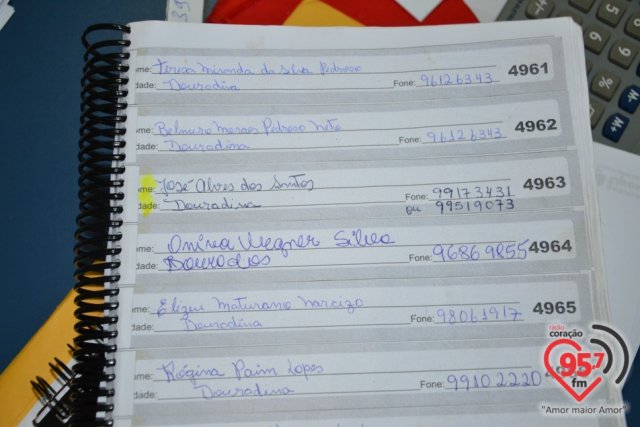 ome: Tereza Miranda da Silva Pedroso
dade: Douradina Fone: 96126343 4961
ome: Belmiro Moraes Pedroso Neto
dade: Douradina Fone: 96126343 4962
ome: José Alves dos Santos
Fone: 99173431 4963
dade: Douradina ou 99519073
ome: Onira Wegner Silva
dade: Dourados Fone: 96869855 4964
ome: Elizeu Maturano Narcizo
dade: Douradina Fone: 98061917 4965
ome: Régina Paim Lopes
dade: Douradina Fone: 99102220
rádio
coração
95,7
fm
"Amor maior Amor"